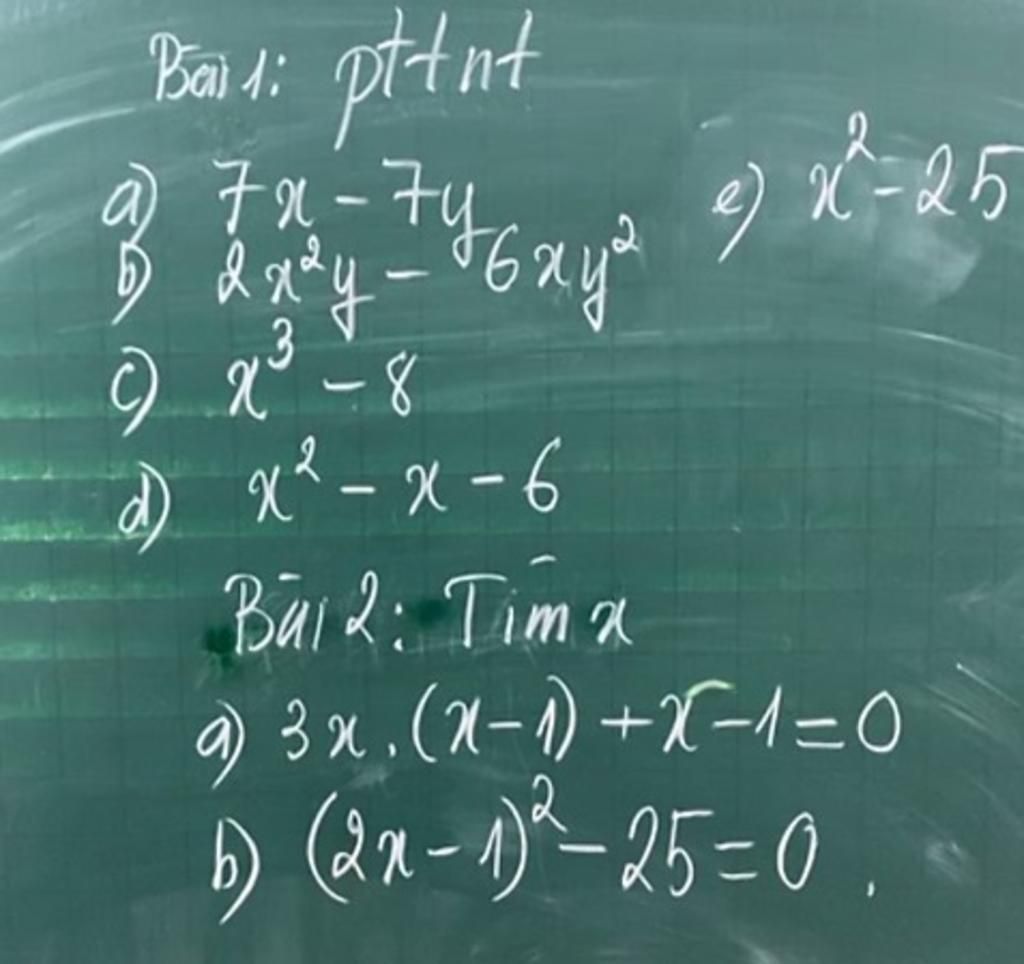 Bài 1: pttnt
a) 7x - 7y
b) 2x²y - 6xy²
c) x³ - 8
d) x² - x - 6
e) x² - 25
Bài 2: Tìm x
a) 3x.(x-1) + x - 1 = 0
b) (2x - 1)² - 25 = 0.